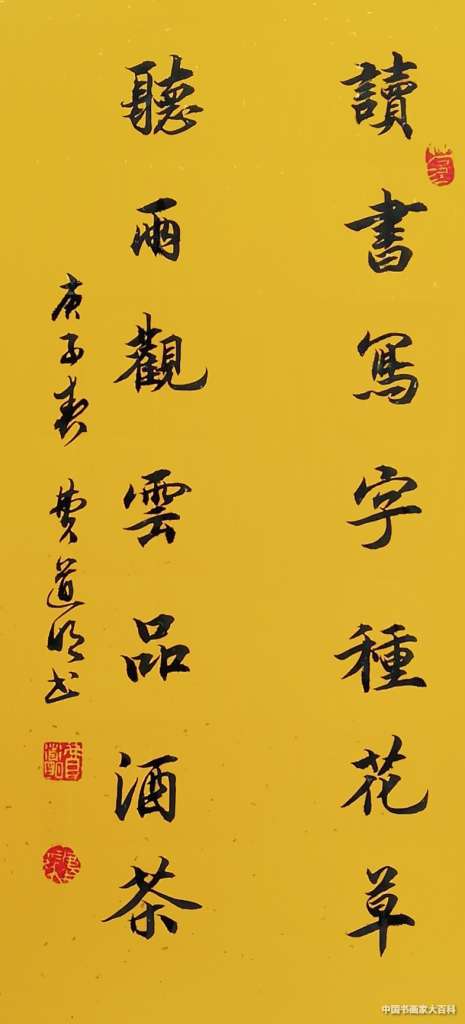 讀書寫字種花草
聽雨觀雲品酒茶
庚子春 費道明书
中国书画家大百科